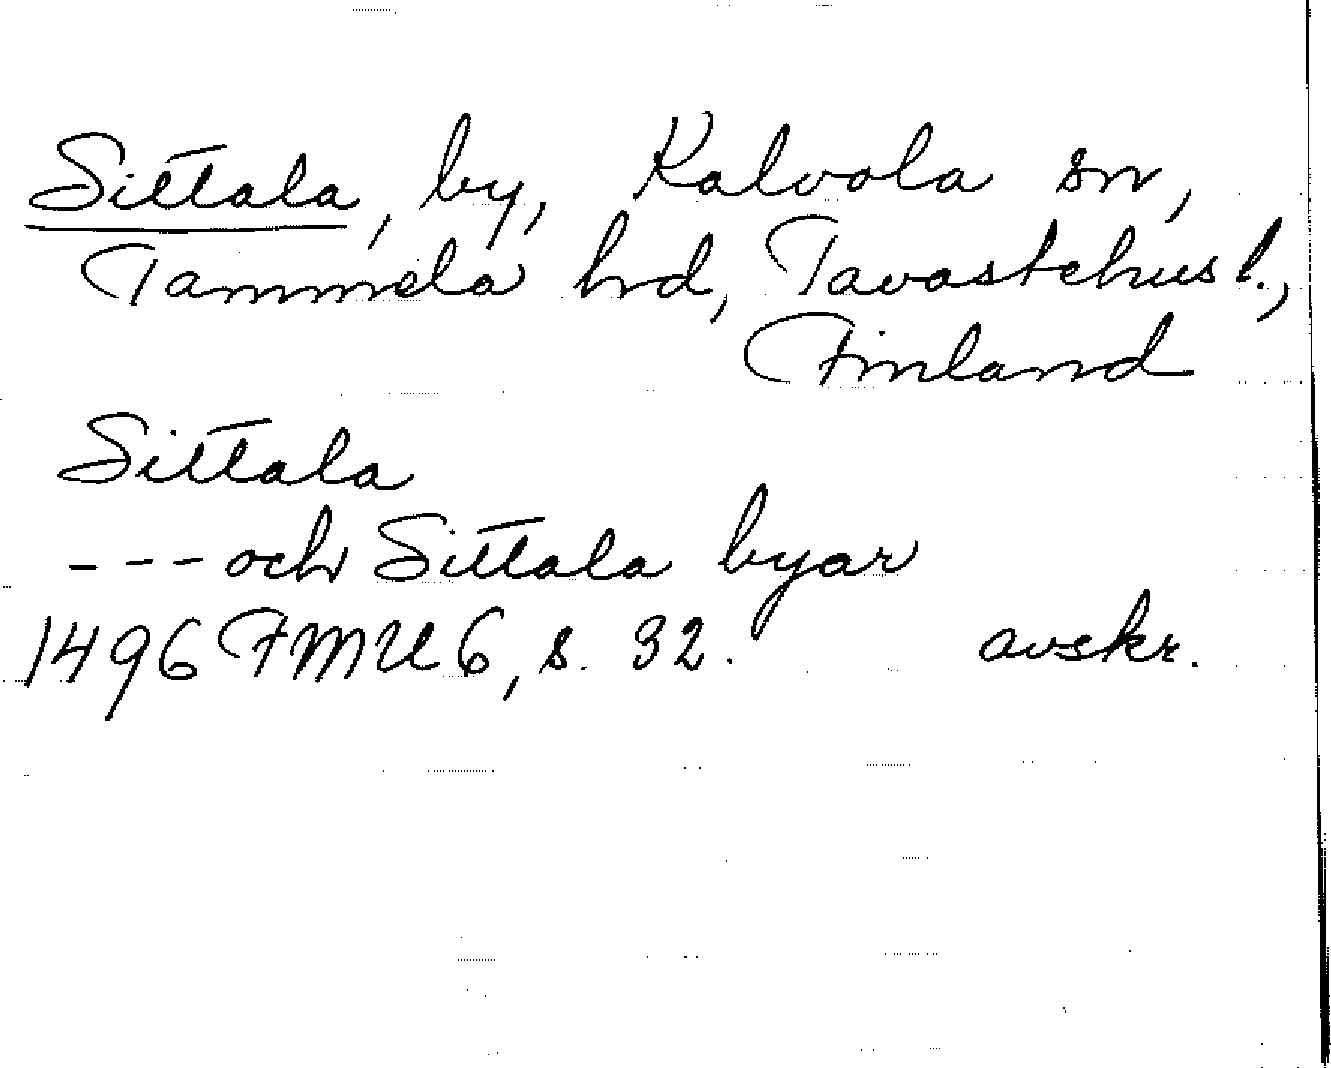 Sittala, by, Kalvola sn,
Tammela hrd, Tavastehus l.,
Finland
Sittala
--- och Sittala byar
1496 FMU 6, s. 32. avskr.